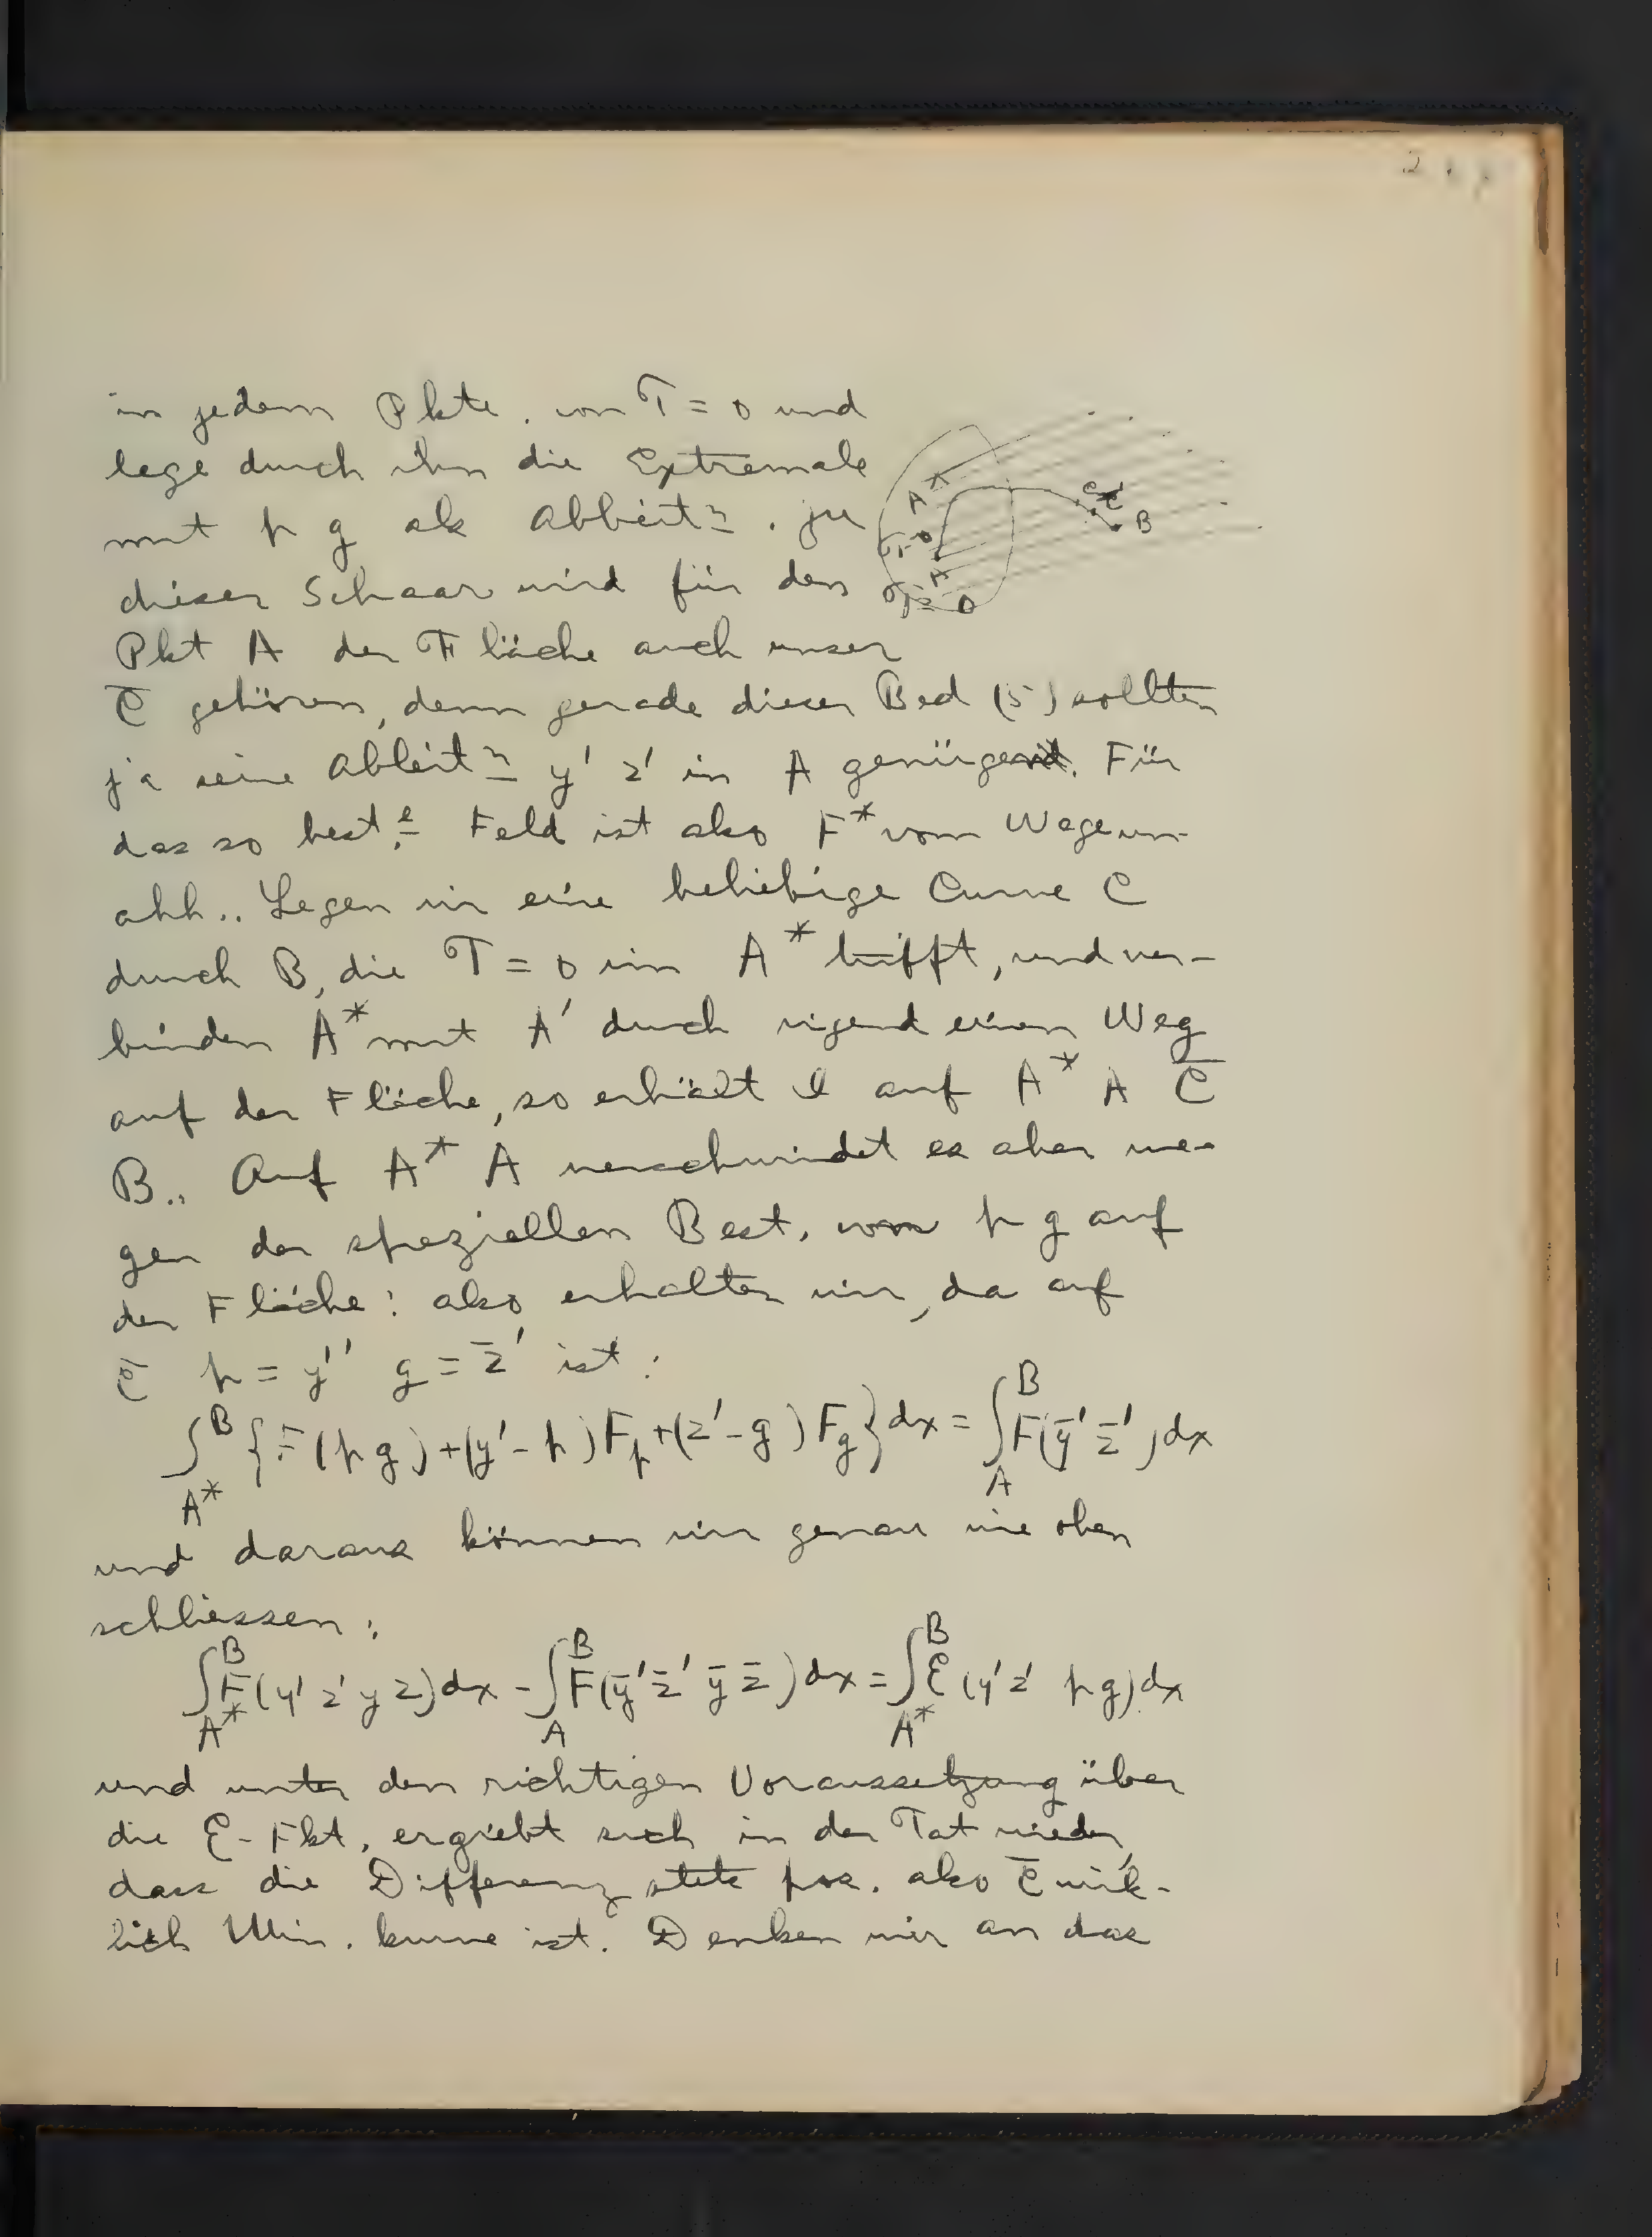 in jedem Pkte. von T = 0 und
lege durch ihn die Extremale
mit p q als Ableit<u>n</u>. zu
dieser Schaar wird für den
Pkt A der Fläche auch unser
C̅ gehören, denn gerade dieser Bed (5) sollten
ja seine Ableit<u>n</u> y' z' in A genügen. Für
das so best.<u>e</u> Feld ist also F* vom Wege un-
abh.. Legen wir eine beliebige Curve C
durch B, die T = 0 in A* trifft, und ver-
binden A* mit A' durch irgend einen Weg
auf der Fläche, so erhält I auf A* A C̅
B.. Auf A* A verschwindet es aber we-
gen der speziellen Best. von p q auf
der Fläche: also erhalten wir, da auf
C̅ p = y̅' q = z̅' ist:
∫_{A*}^{B} {F(p q) + (y' - p) F_p + (z' - q) F_q} dx = ∫_{A}^{B} F(y̅' z̅') dx
und daraus können wir genau wie oben
schliessen:
∫_{A*}^{B} F(y' z' y z) dx - ∫_{A}^{B} F(y̅' z̅' y̅ z̅) dx = ∫_{A*}^{B} ℰ(y' z' p q) dx
und unter den richtigen Voraussetzung über
die ℰ-Fkt. ergiebt sich in der Tat wieder,
dass die Differenz stets pos. also C̅ wirk-
lich Min. kurve ist. Denken wir an das
A*
T=0
A
T = 0
C
B